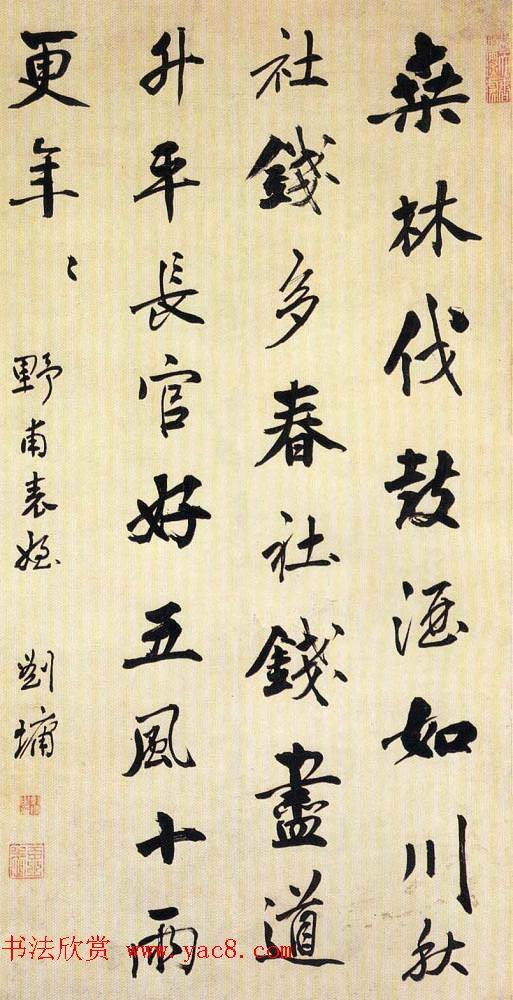 桑林伐鼓酒如川秋
社錢多春社錢盡道
升平長官好五風十雨
更年〻
野甫表姪 劉墉
书法欣赏 www.yac8.com